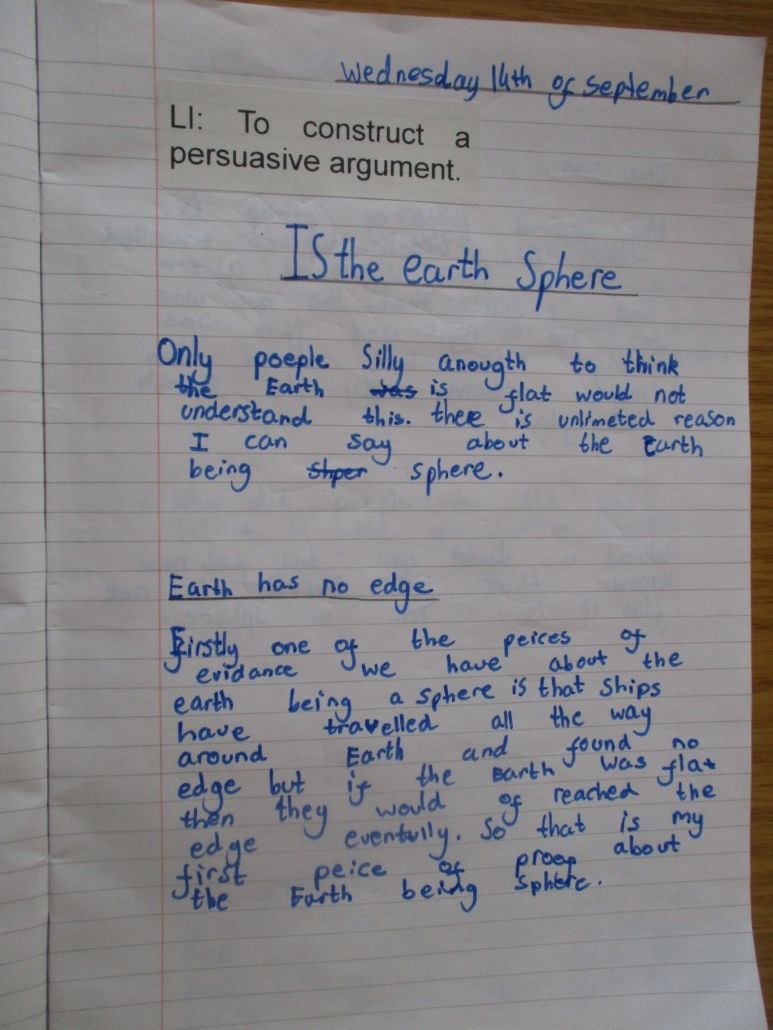 Wednesday 14th of September
LI: To construct a
persuasive argument.
Is the earth Sphere
Only poeple silly anougth to think
the Earth was is flat would not
understand this. there is unlimeted reason
I can say about the Earth
being shper sphere.
Earth has no edge
Firstly one of the peices of
evidance we have about the
earth being a sphere is that ships
have travelled all the way
around Earth and found no
edge but if the Earth was flat
then they would of reached the
edge eventully. So that is my
first peice of proof about
the Earth being sphere.